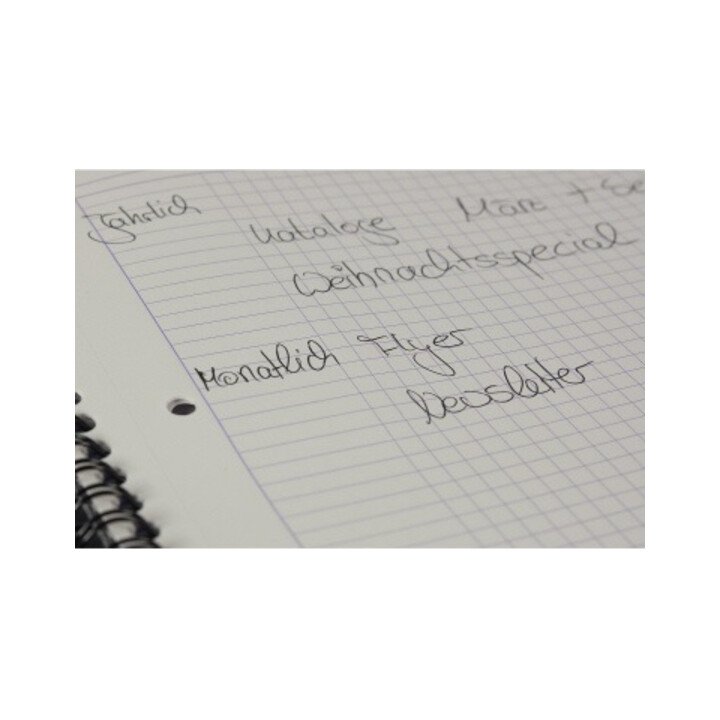 Jährlich Kataloge März + Se
Weihnachtsspecial
Monatlich Flyer
Newsletter